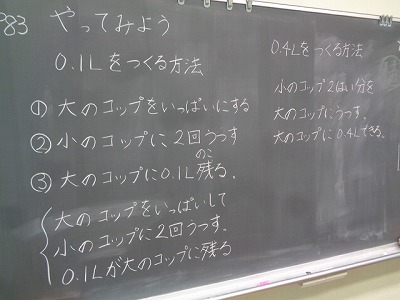 P83 やってみよう
0.1Lをつくる方法
① 大のコップをいっぱいにする
② 小のコップに2回うつす
③ 大のコップに0.1L残る。
のこ
大のコップをいっぱいして
小のコップに2回うつす。
0.1Lが大のコップに残る
0.4Lをつくる方法
小のコップ2はい分を
大のコップにうつす。
大のコップに0.4Lできる。